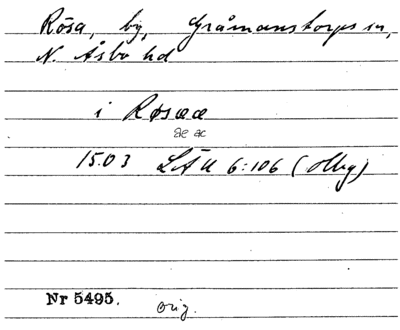 Rösa, by, Gråmanstorps sn,
N. Åsbo hd
i Røsææ
æ æ
1503 LÄU 6:106 (Olby)
Nr 5495. orig.